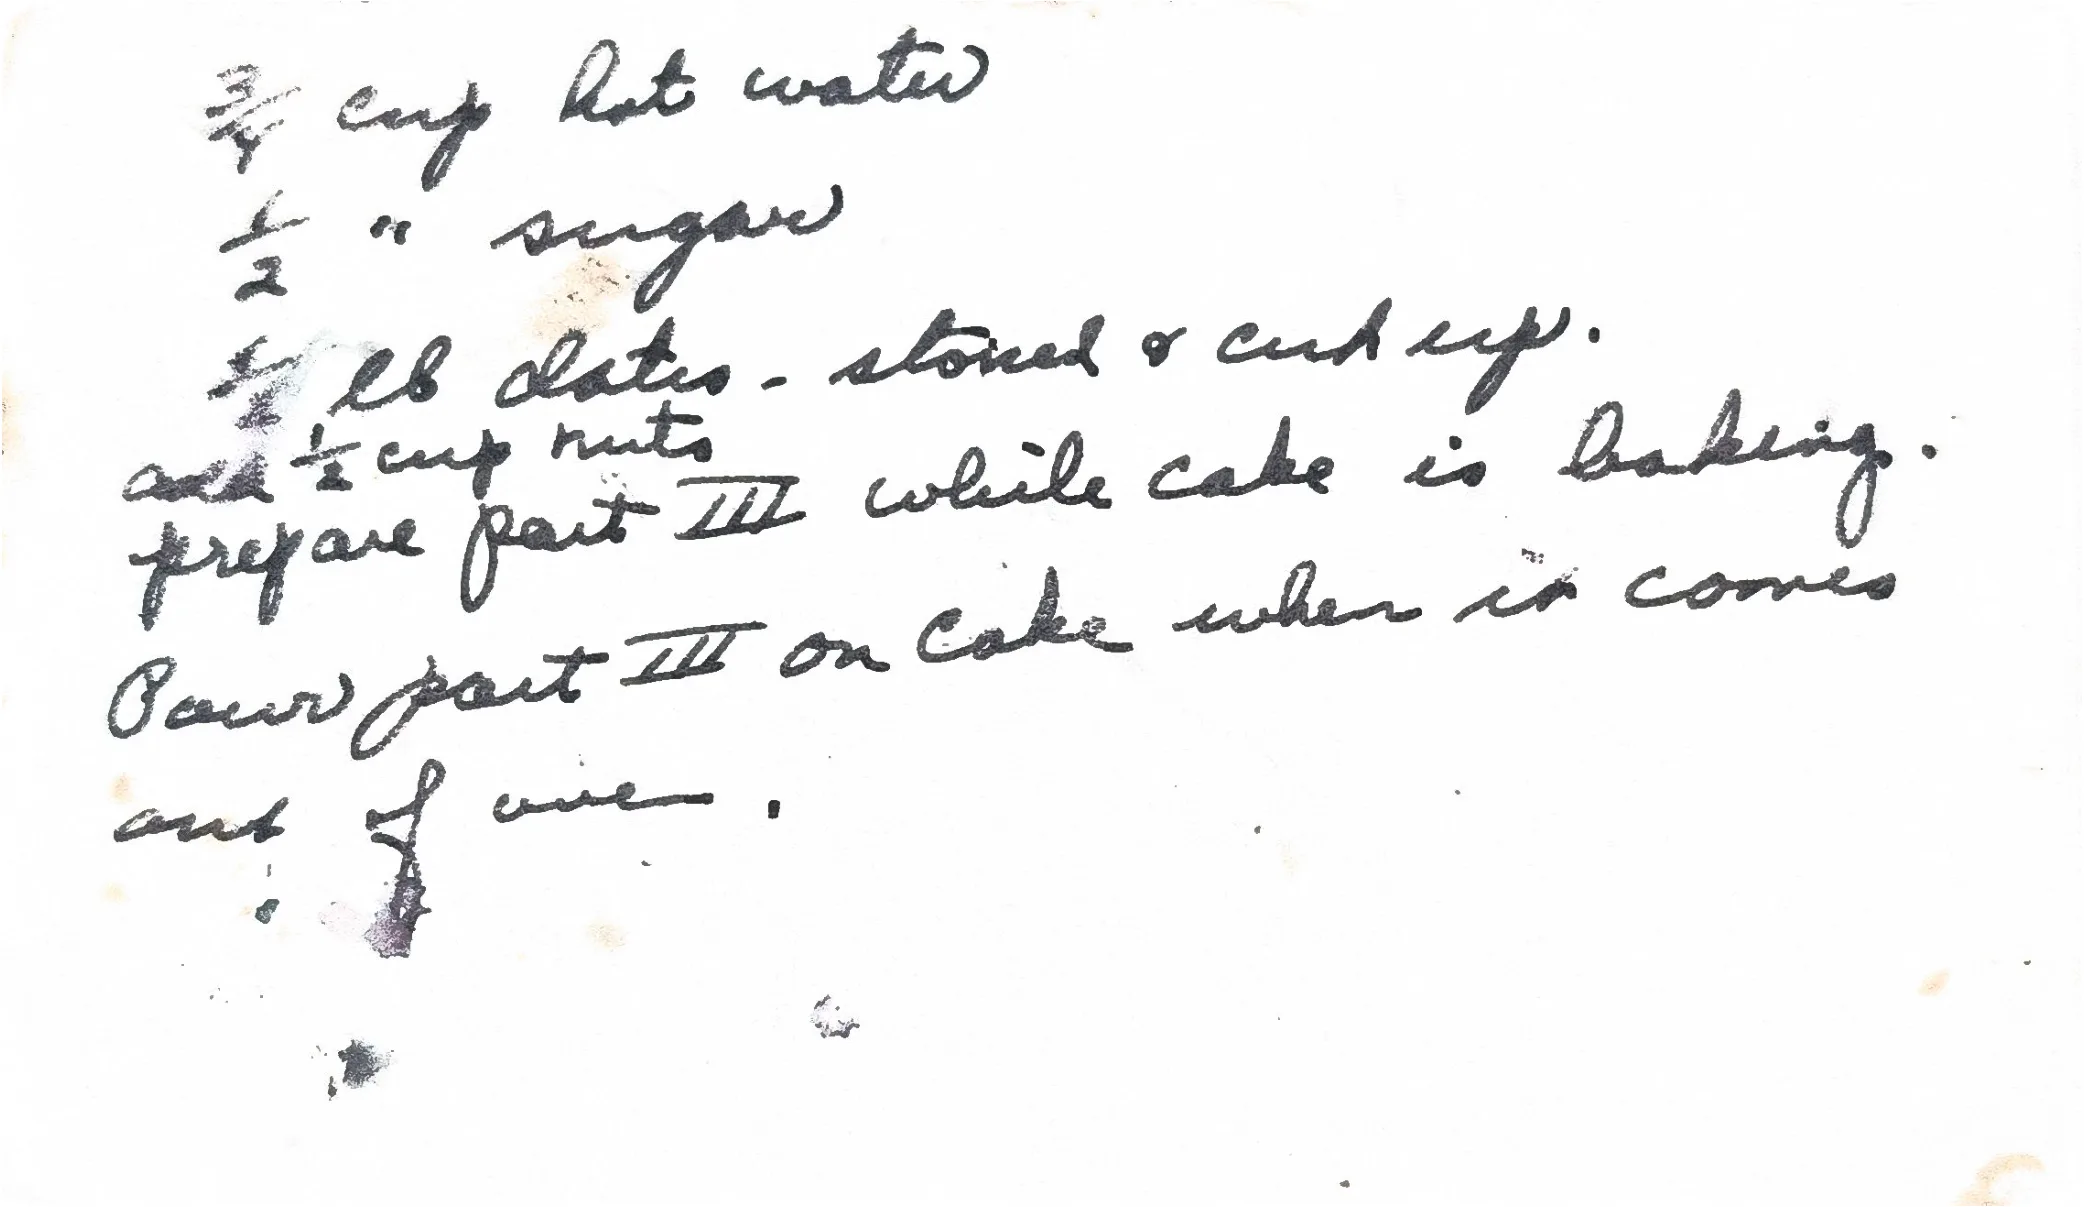 3/4 cup hot water
1/2 " sugar
1/2 lb dates - stoned & cut up.
and 1/2 cup nuts
prepare part III while cake is baking.
Pour part III on cake when it comes
out of oven.